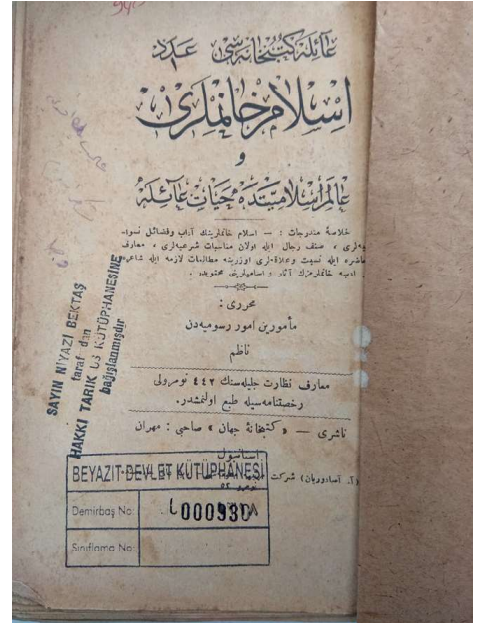 عائله کتبخانه‌سی عدد ١
اسلام خانملری
و
عالم اسلامیتده حیات عائله
خلاصهٔ مندرجات : — اسلام خانملرینك آداب وفضائل نسوا
یه‌لری ، صنف رجال ایله اولان مناسبات شرعیه‌لری ، معارف
عاشره ایله نسبت وعلاقه‌لری اوزرینه مطالعات لازمه ایله شاعره
ادیبه خانملرمزك آثار و اسامیلرینی محتویدر .
محرری :
مأمورین امور رسومیه‌دن
ناظم
معارف نظارت جلیله‌سنك ٤٤٢ نومرولی
رخصتنامه‌سیله طبع اولنمشدر.
ناشری — « کتبخانهٔ جهان » صاحبی : مهران
استانبول
(آ. آصادوریان) شرکت
نومرو ٥٢
SAYIN NİYAZİ BEKTAŞ
taraf dan
HAKKI TARIK US KÜTÜPHANESİNE
bağışlanmışdır
BEYAZIT DEVLET KÜTÜPHANESİ
Demirbaş No: 000930
Sınıflama No: